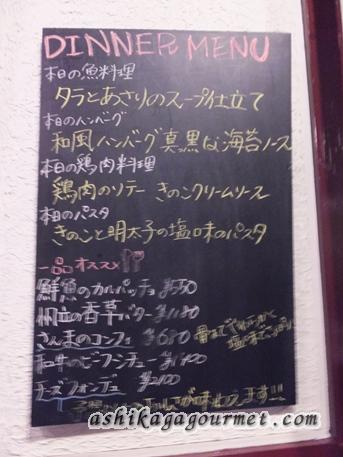 DINNER MENU
本日の魚料理
タラとあさりのスープ仕立て
本日のハンバーグ
和風ハンバーグ真っ黒な海苔ソース
本日の鶏肉料理
鶏肉のソテー きのこクリームソース
本日のパスタ
きのこと明太子の塩味のパスタ
一品オススメ
鮮魚のカルパッチョ
帆立の香草バター ¥1180
さんまのコンフィ ¥680
骨まで
和牛のビーフシチュー
チーズフォンデュ ¥2100
ashikagagourmet.com